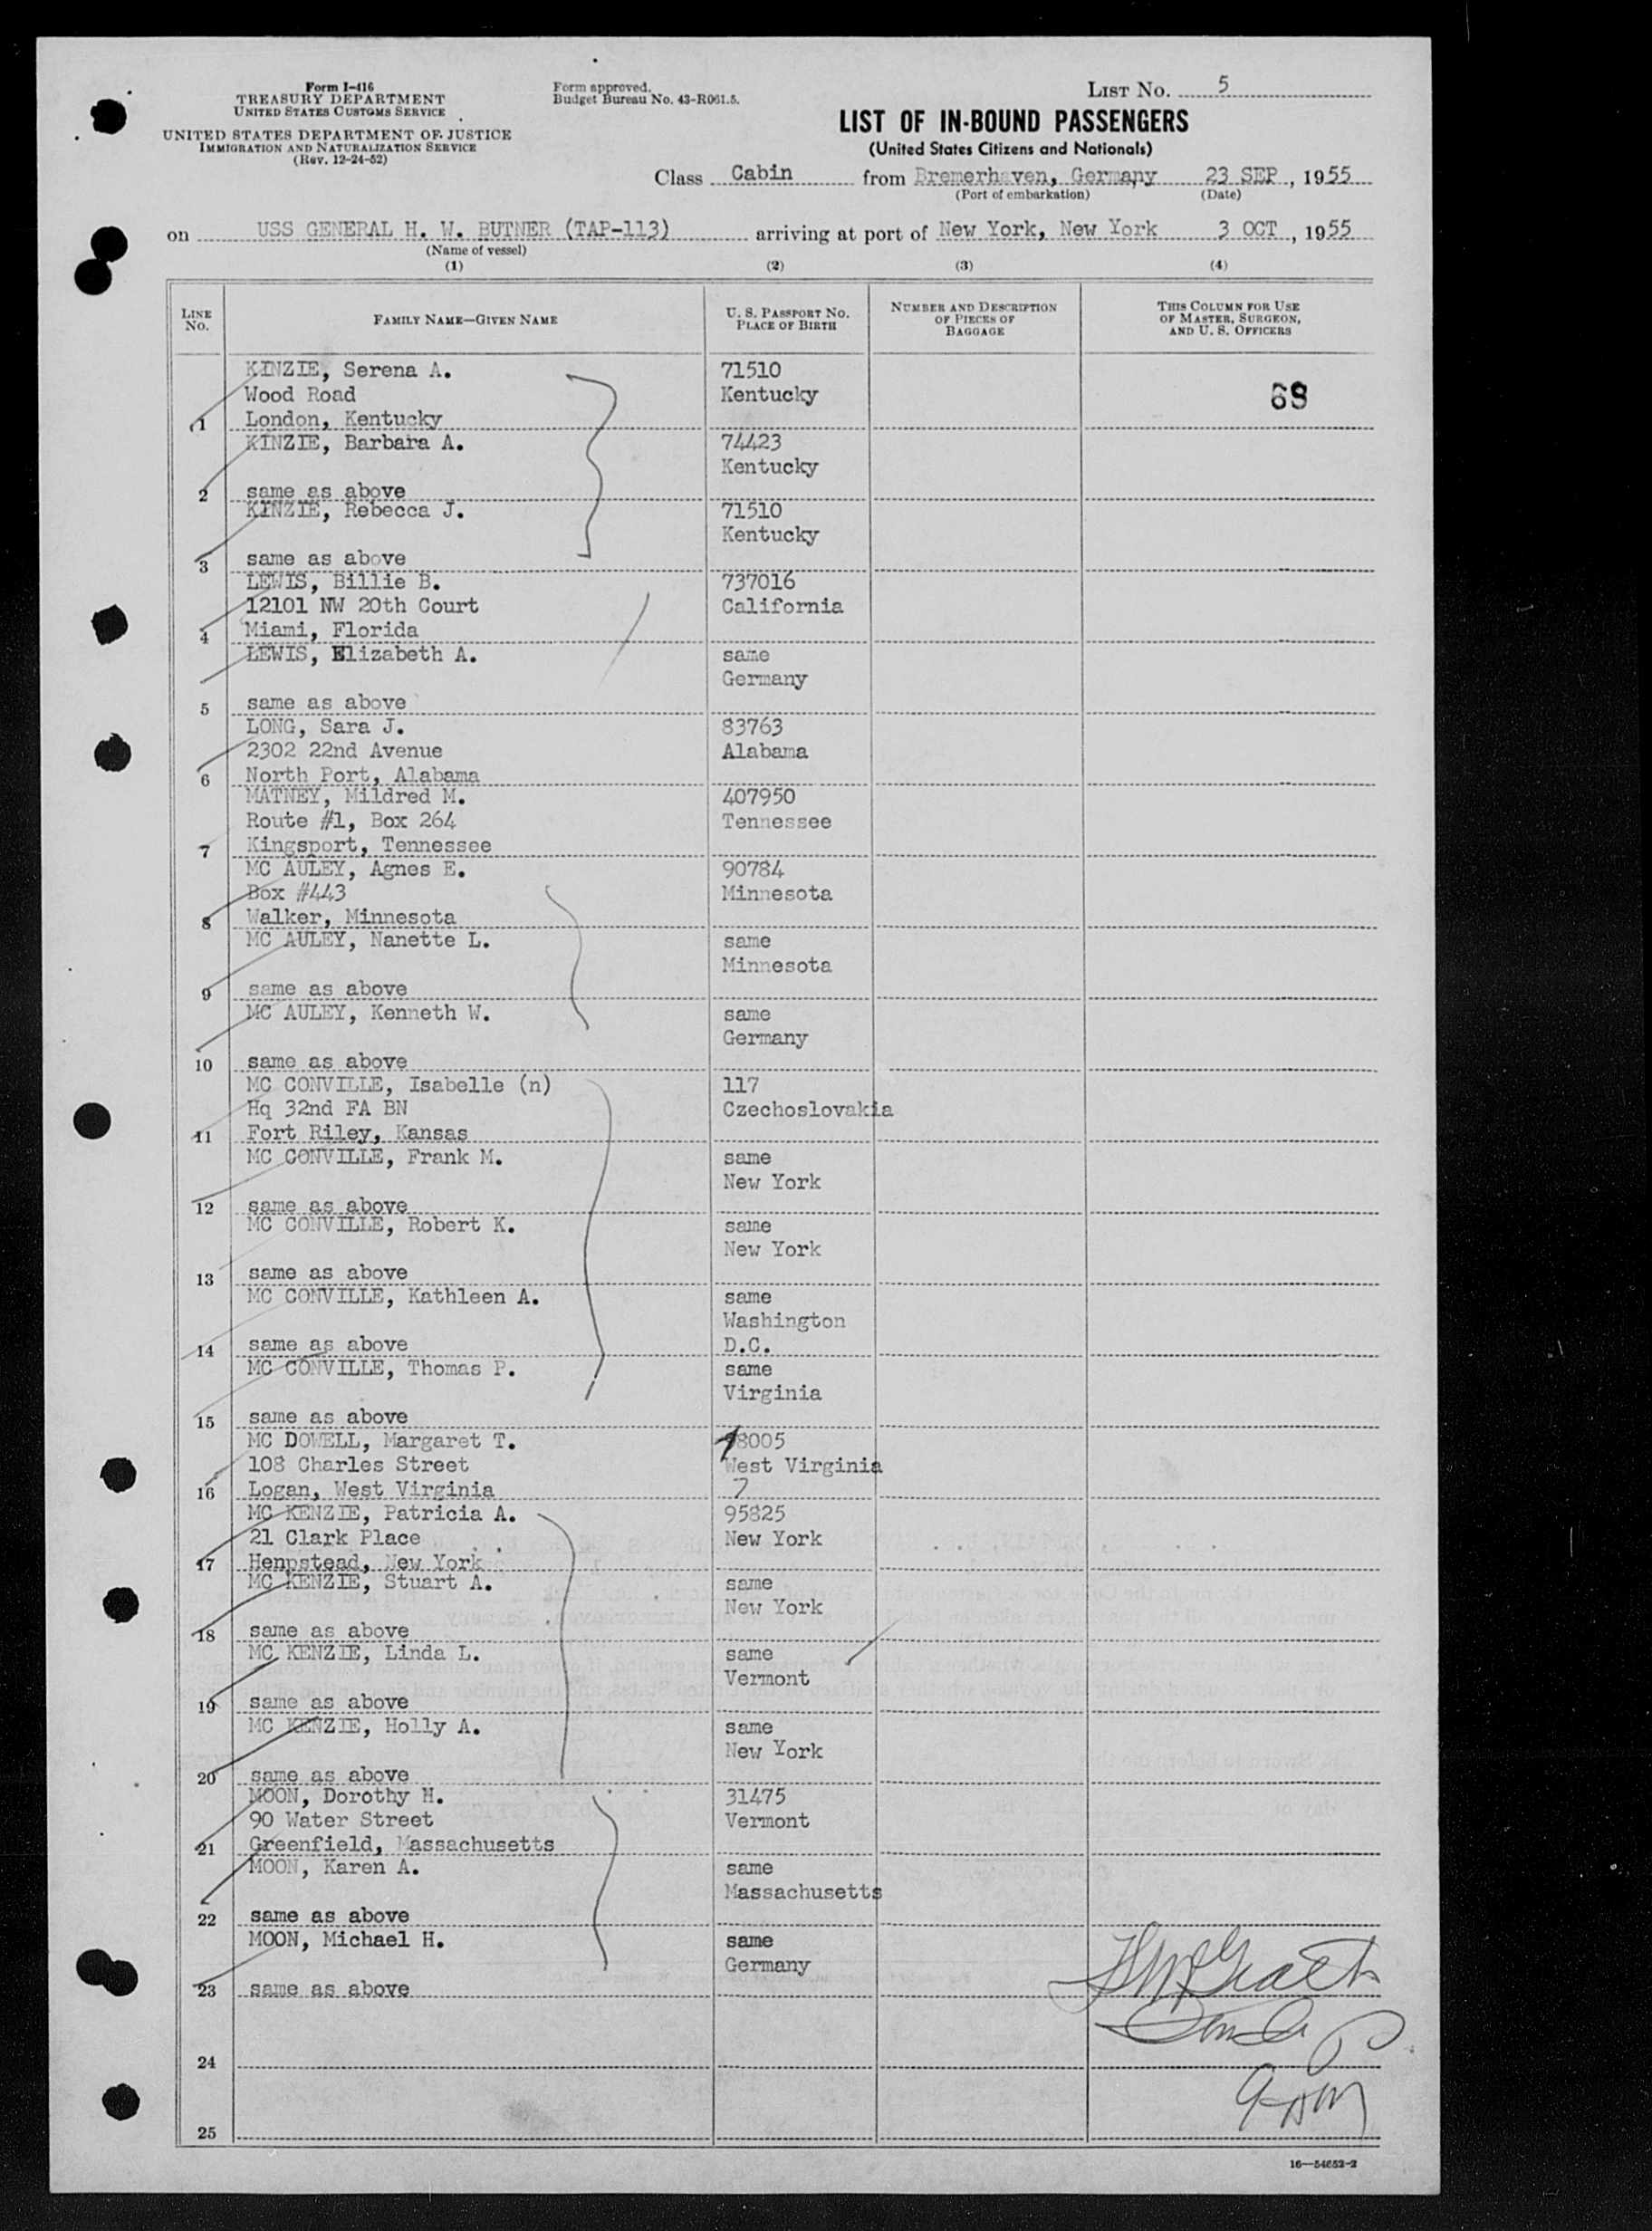 Form I-416
TREASURY DEPARTMENT
UNITED STATES CUSTOMS SERVICE
UNITED STATES DEPARTMENT OF JUSTICE
IMMIGRATION AND NATURALIZATION SERVICE
(Rev. 12-24-52)
Form approved.
Budget Bureau No. 43-R061.5.
LIST NO. 5
LIST OF IN-BOUND PASSENGERS
(United States Citizens and Nationals)
Class Cabin from Bremerhaven, Germany 23 SEP, 1955
(Port of embarkation) (Date)
on USS GENERAL H. W. BUTNER (TAP-113) arriving at port of New York, New York 3 OCT, 1955
(Name of vessel)
(1) (2) (3) (4)
LINE NO. FAMILY NAME—GIVEN NAME U. S. PASSPORT NO. PLACE OF BIRTH NUMBER AND DESCRIPTION OF PIECES OF BAGGAGE THIS COLUMN FOR USE OF MASTER, SURGEON, AND U. S. OFFICERS
KINZIE, Serena A. 71510
Wood Road Kentucky 68
1 London, Kentucky
KINZIE, Barbara A. 74423
Kentucky
2 same as above
KINZIE, Rebecca J. 71510
Kentucky
3 same as above
LEWIS, Billie B. 737016
12101 NW 20th Court California
4 Miami, Florida
LEWIS, Elizabeth A. same
Germany
5 same as above
LONG, Sara J. 83763
2302 22nd Avenue Alabama
6 North Port, Alabama
MATNEY, Mildred M. 407950
Route #1, Box 264 Tennessee
7 Kingsport, Tennessee
MC AULEY, Agnes E. 90784
Box #443 Minnesota
8 Walker, Minnesota
MC AULEY, Nanette L. same
Minnesota
9 same as above
MC AULEY, Kenneth W. same
Germany
10 same as above
MC CONVILLE, Isabelle (n) 117
Hq 32nd FA BN Czechoslovakia
11 Fort Riley, Kansas
MC CONVILLE, Frank M. same
New York
12 same as above
MC CONVILLE, Robert K. same
New York
13 same as above
MC CONVILLE, Kathleen A. same
Washington
14 same as above D.C.
MC CONVILLE, Thomas P. same
Virginia
15 same as above
MC DOWELL, Margaret T. 78005
108 Charles Street West Virginia
16 Logan, West Virginia 7
MC KENZIE, Patricia A. 95825
21 Clark Place New York
17 Hempstead, New York
MC KENZIE, Stuart A. same
New York
18 same as above
MC KENZIE, Linda L. same
Vermont
19 same as above
MC KENZIE, Holly A. same
New York
20 same as above
MOON, Dorothy H. 31475
90 Water Street Vermont
21 Greenfield, Massachusetts
MOON, Karen A. same
Massachusetts
22 same as above
MOON, Michael H. same
Germany
23 same as above
24
25
16—54652-2